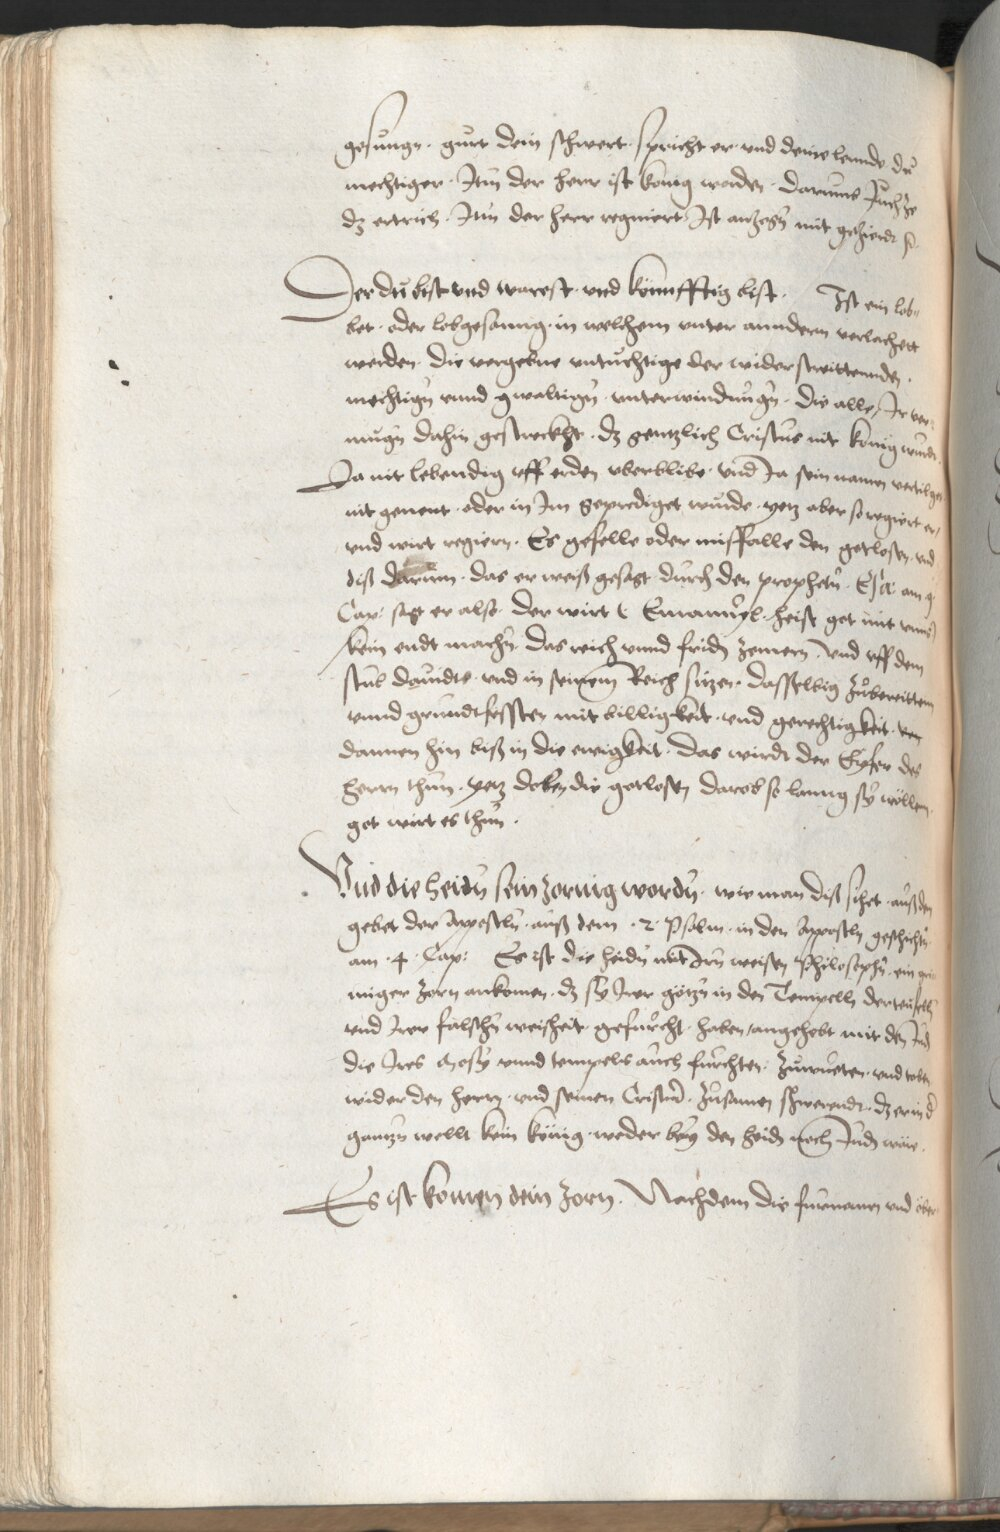 gesungn. gurt dein schwert. spricht er. und deine lennde du
mechtiger. Itm der herr ist konig worden. darumb Juchze
dz ertrich. Itm der herr regniert Ist anzogn mit gezierdt
Der du bist vnd warest. vnd kunfftig bist. Ist ein lob-
bet. oder lobgesanng. in welchem vnter anndern verlachett
werden. die vergebne vntuchtige der widerstreittennden.
mechtign vnnd gwaltign. vnterwindungn. die alle Jr ver-
mugn dahin gestreckht. dz gentzlich Cristus nit konig wurdt.
Ja nit lebendig vff erden vberblibe. vnd Ja sein namen vertilget
nit genent. oder in Im geprediget wurde. yetz aber so regiert er
vnd wirt regiern. Es gefelle oder missfalle den gotlosen. vnd
diß darum. das er weiß gesagt durch den prophetn. Esa. am 9
Cap. sagt er also. der wirt Emanuel. heist got mit vnns
kein endt machn. das reich vnnd fridn zemern. vnd vff dem
stul dauidts. vnd in seinem Reich sitzen. dasselbig zubereitten
vnnd grundtfessten mit billigkeit. vnd gerechtigkeit. von
dannen hin biß in die ewigkeit. das wirdt der Eyfer des
herrn thun. yetz toben die gotlosen darob so lanng sy wöllen.
got wirt es thun.
Vnd die heidn sein zornig wordn. wie man diß sihet. auß dem
gebet der Appostln. auß dem. 2. Psalm. in den Appostln geschichtn.
am. 4. Cap. Es ist die heidn mit Irn weisen Philosophn. ein gri-
miger zorn ankomen. dz sy Irer götzn in den Tempelln der teufelln
vnd Irer falschn weisheit. gefurcht. haben angehebt mit den Judn
die Ires gesetz vnnd tempels auch furchten. zuwueten. vnd toben
wider den herrn. vnd seinen Cristum. zusamen schwerendt. dz er in d
gantzn wellt kein konig. weder bey den heidn noch Judn wäre.
Es ist komen dein zorn. Nachdem die furnamen vnd ober